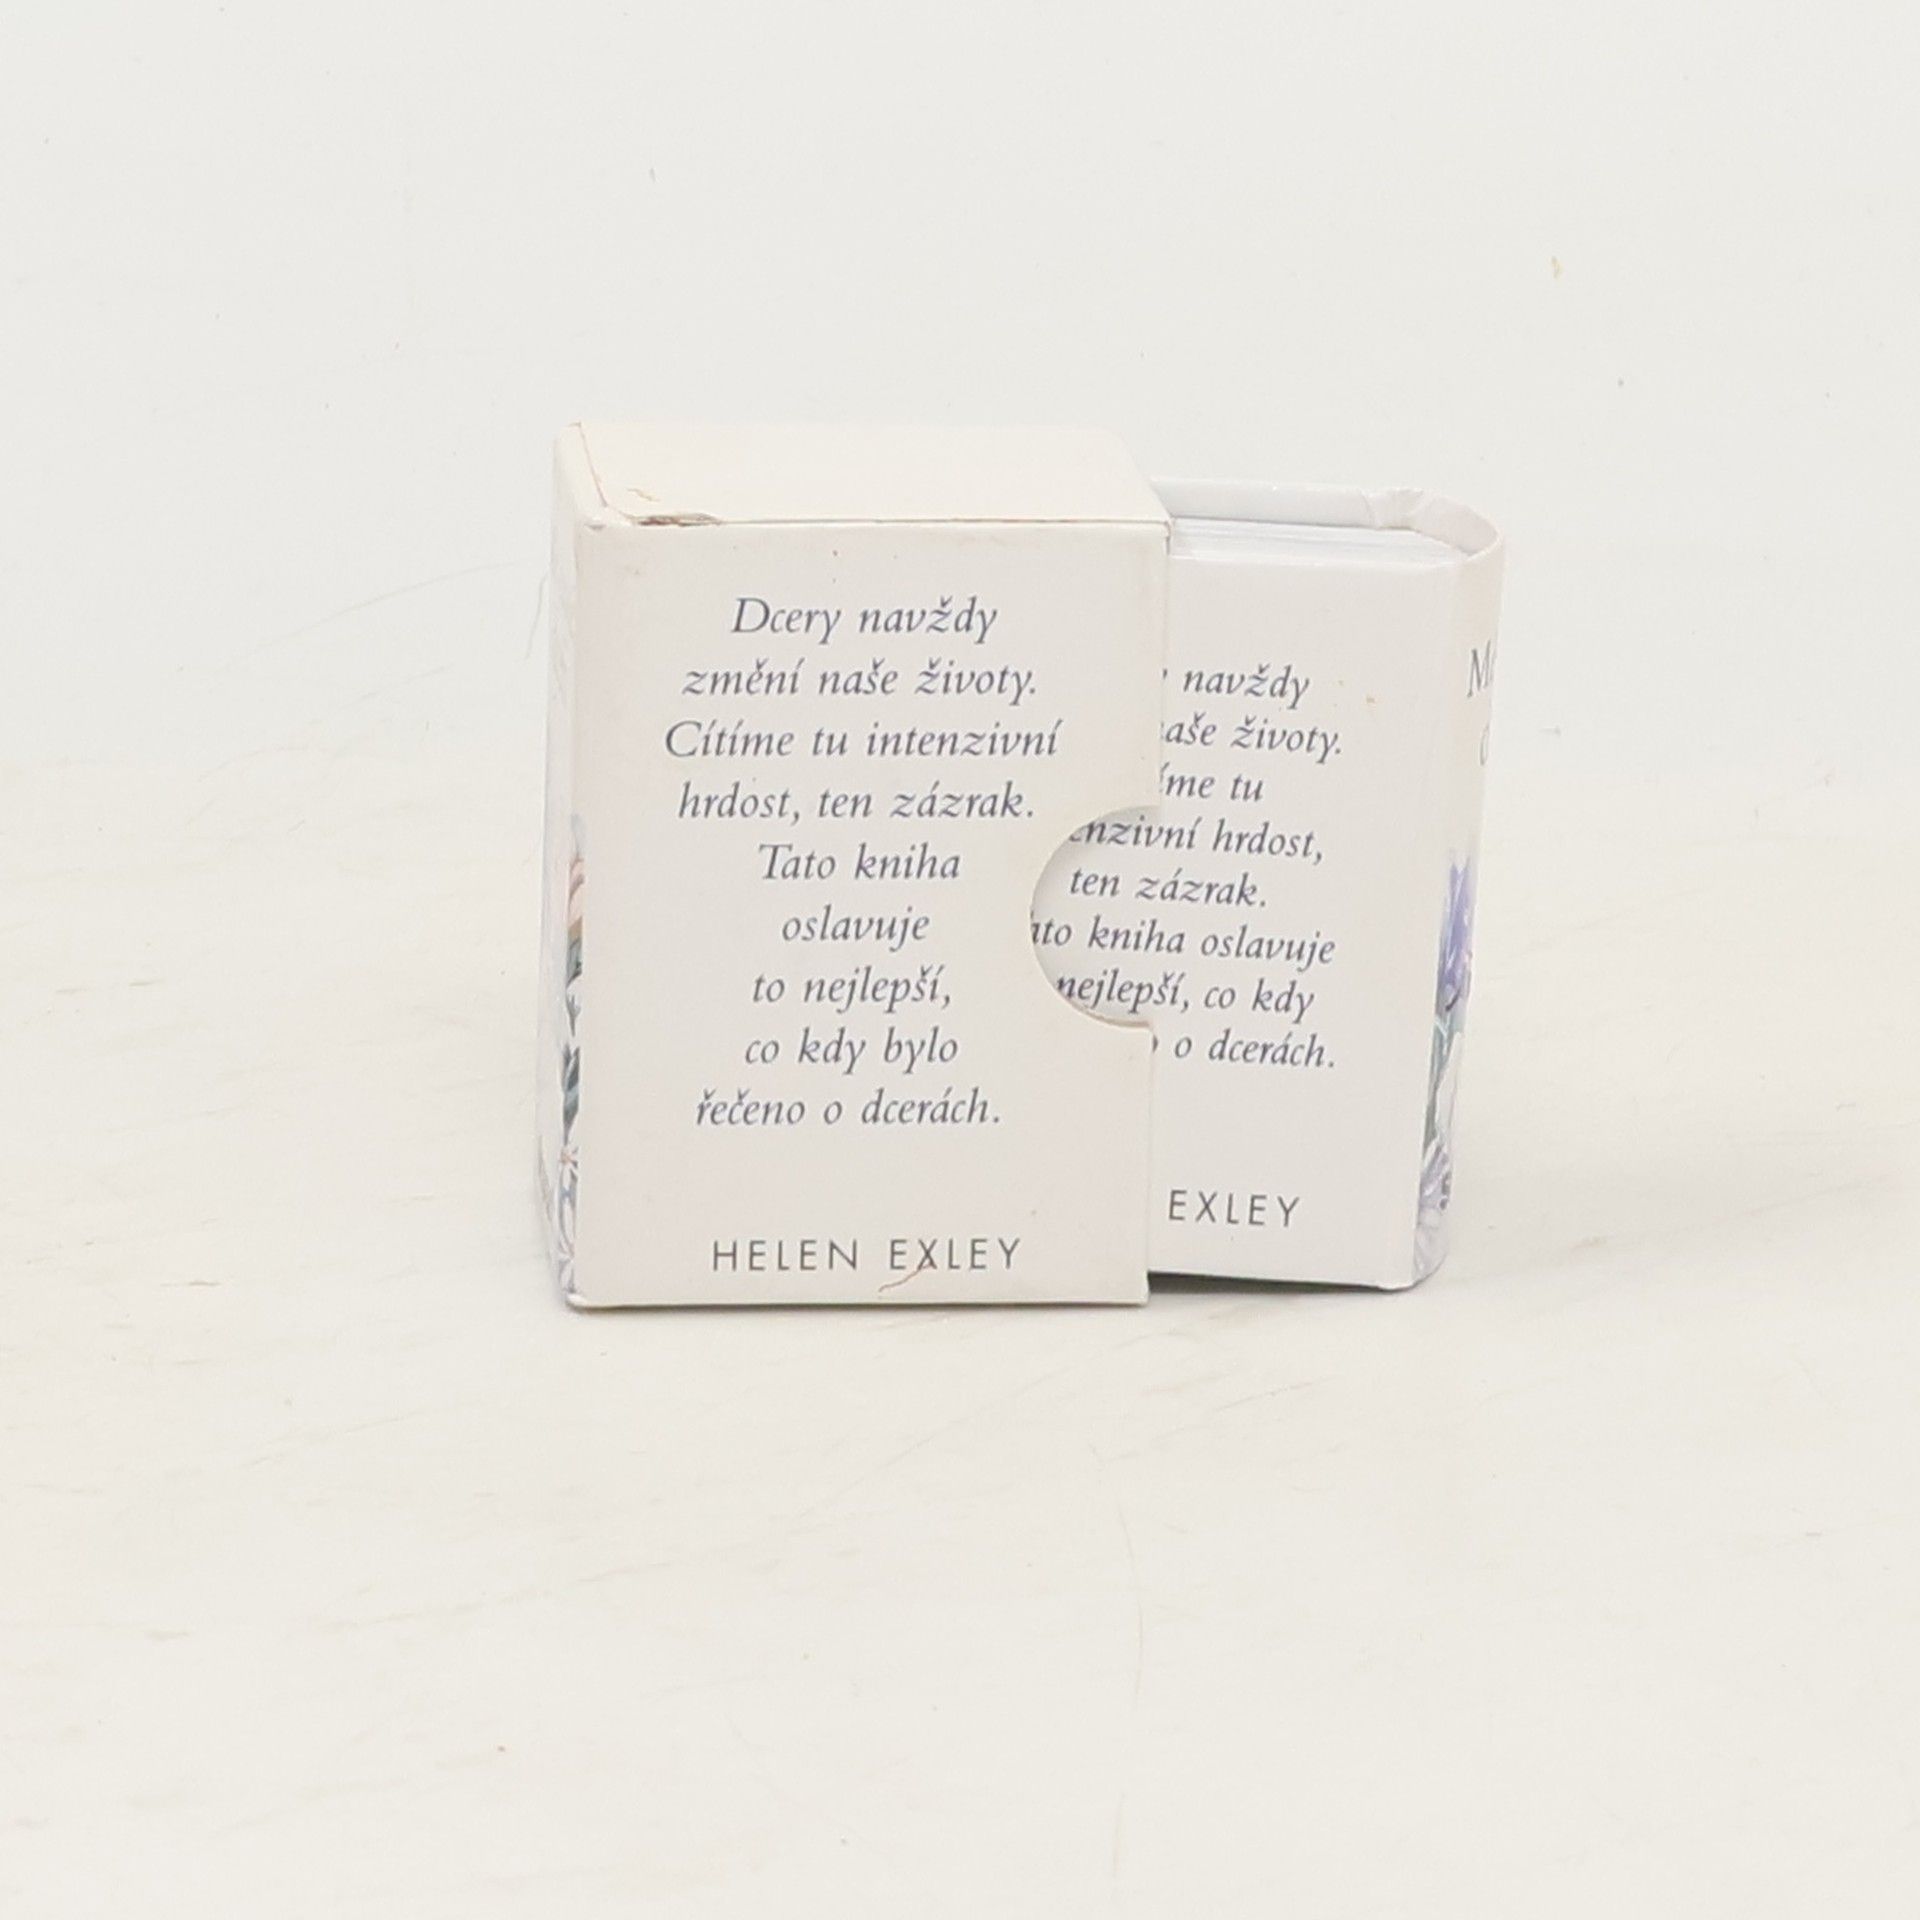 Dcery navždy
změní naše životy.
Cítíme tu intenzivní
hrdost, ten zázrak.
Tato kniha
oslavuje
to nejlepší,
co kdy bylo
řečeno o dcerách.
HELEN EXLEY
navždy
životy.
tu
hrdost,
ten zázrak.
kniha oslavuje
nejlepší, co kdy
o dcerách.
EXLEY